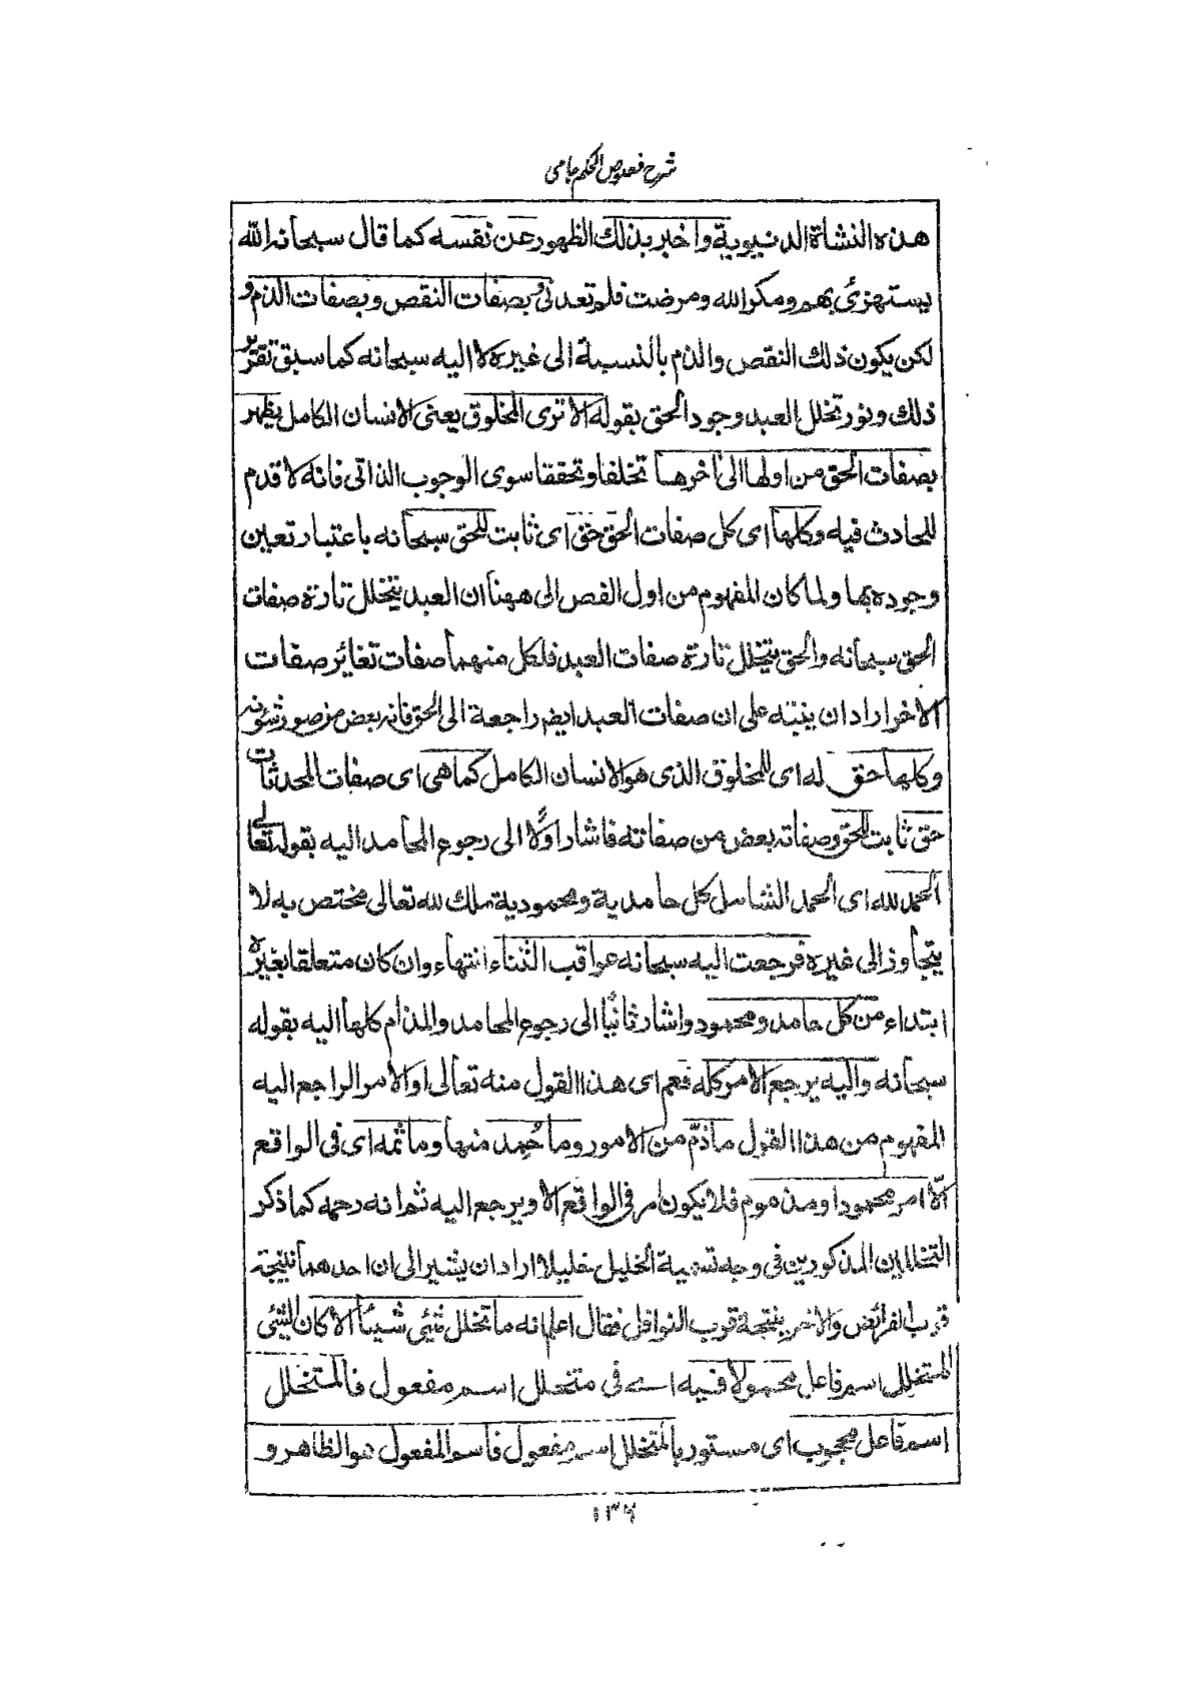 شرح فصوص الحكم جامى
هذه النشاة الدنيوية واخبر بذلك الظهور عن نفسه كما قال سبحانه الله
يستهزئ بهم ومكر الله ومرضت فلم تعدنى وبصفات النقص وبصفات الذم و
لكن يكون ذلك النقص والذم بالنسبة الى غيره لا اليه سبحانه كما سبق تقرير
ذلك ونور تخلل العبد وجود الحق بقوله الا ترى المخلوق يعنى الانسان الكامل يظهر
بصفات الحق من اولها الى اخرها تخلقا وتحققا سوى الوجوب الذاتى فانه لا قدم
للحادث فيه وكلها اى كل صفات الحق حق اى ثابت للحق سبحانه باعتبار تعين
وجوده بها ولما كان المفهوم من اول الفص الى ههنا ان العبد يتخلل تارة صفات
الحق سبحانه والحق يتخلل تارة صفات العبد فلكل منهما صفات تغائر صفات
الاخر اراد ان ينبّه على ان صفات العبد ايضا راجعة الى الحق فانه بعض من صور شئونه
وكلها حق له اى للمخلوق الذى هو الانسان الكامل كما هى اى صفات المحدثات
حق ثابت للحق وصفاته بعض من صفاته فاشار اولًا الى رجوع المحامد اليه بقوله تعالى
الحمد لله اى الحمد الشامل كل حامدية ومحمودية ملك لله تعالى مختص به لا
يتجاوز الى غيره فرجعت اليه سبحانه عواقب الثناء انتهاء وان كان متعلقا بغيره
ابتداء من كل حامد ومحمود واشار ثانيًا الى رجوع المحامد والمذام كلها اليه بقوله
سبحانه واليه يرجع الامر كله فعم اى هذا القول منه تعالى او الامر الراجع اليه
المفهوم من هذا القول ماذمّ من الامور وما حُمِد منها وما ثمه اى فى الواقع
الّا امر محمود او مذموم فلا يكون امر فى الواقع الا ويرجع اليه ثم انه رحمه كما ذكر
التخللين المذكورين فى وجه تسمية الخليل خليلا اراد ان يشير الى ان احدهما نتيجة
قرب الفرائض والاخر نتيجة قرب النوافل فقال اعلم انه ما تخلل شئى شيئا الا كان الشئى
المتخلل اسم فاعل محمولا فيه اے فى متخلل اسم مفعول فالمتخلل
اسم فاعل محجوب اى مستور بالمتخلل اسم مفعول فاسم المفعول هو الظاهر و
١٣٦